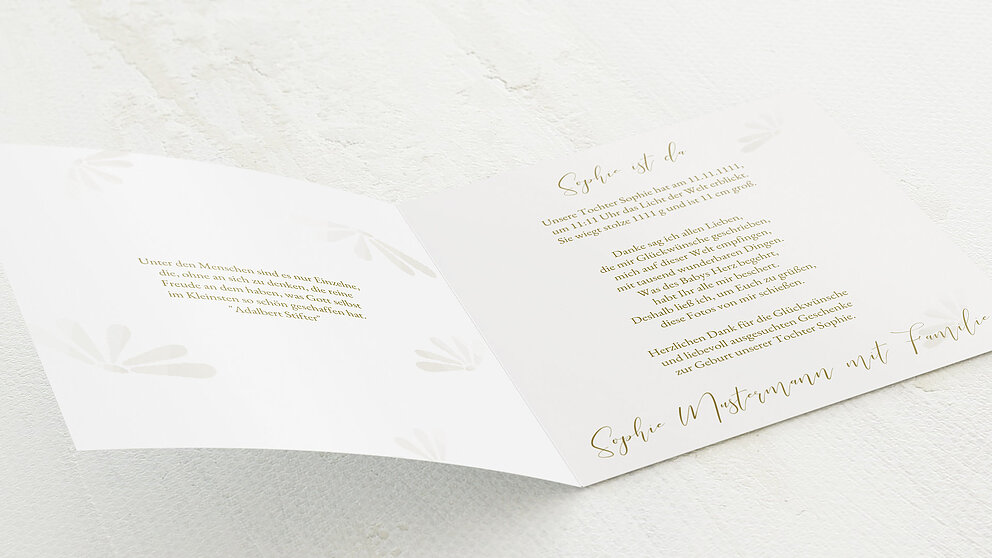 Unter den Menschen sind es nur Einzelne,
die, ohne an sich zu denken, die reine
Freude an dem haben, was Gott selbst
im Kleinsten so schön geschaffen hat.
"Adalbert Stifter"
Sophie ist da
Unsere Tochter Sophie hat am 11.11.1111,
um 11:11 Uhr das Licht der Welt erblickt.
Sie wiegt stolze 1111 g und ist 11 cm groß.
Danke sag ich allen Lieben,
die mir Glückwünsche geschrieben,
mich auf dieser Welt empfingen,
mit tausend wunderbaren Dingen.
Was des Babys Herz begehrt,
habt Ihr alle mir beschert.
Deshalb ließ ich, um Euch zu grüßen,
diese Fotos von mir schießen.
Herzlichen Dank für die Glückwünsche
und liebevoll ausgesuchten Geschenke
zur Geburt unserer Tochter Sophie.
Sophie Mustermann mit Familie